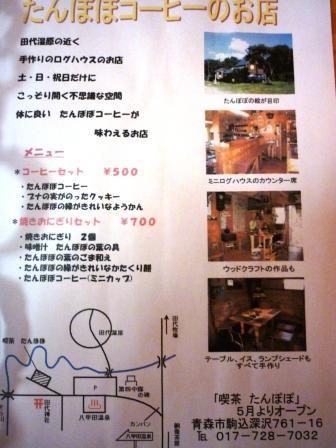 たんぽぽコーヒーのお店
田代湿原の近く
手作りのログハウスのお店
土・日・祝日だけに
こっそり開く不思議な空間
体に良い たんぽぽコーヒーが
味わえるお店
メニュー
＊コーヒーセット ￥500
・たんぽぽコーヒー
・ブナの実がのったクッキー
・たんぽぽの緑がきれいなようかん
＊焼きおにぎりセット ￥700
・焼きおにぎり 2個
・味噌汁 たんぽぽの葉の具
・たんぽぽの葉のごま和え
・たんぽぽの緑がきれいなかたくり餅
・たんぽぽコーヒー(ミニカップ)
たんぽぽの絵が目印
ミニログハウスのカウンター席
ウッドクラフトの作品も
テーブル、イス、ランプシェードも
すべて手作り
喫茶 たんぽぽ
田代湿原
田代神社
P
八甲田温泉
カンバン
八甲田温泉
「喫茶 たんぽぽ」
5月よりオープン
青森市駒込深沢761-16
TEL 017-728-7032